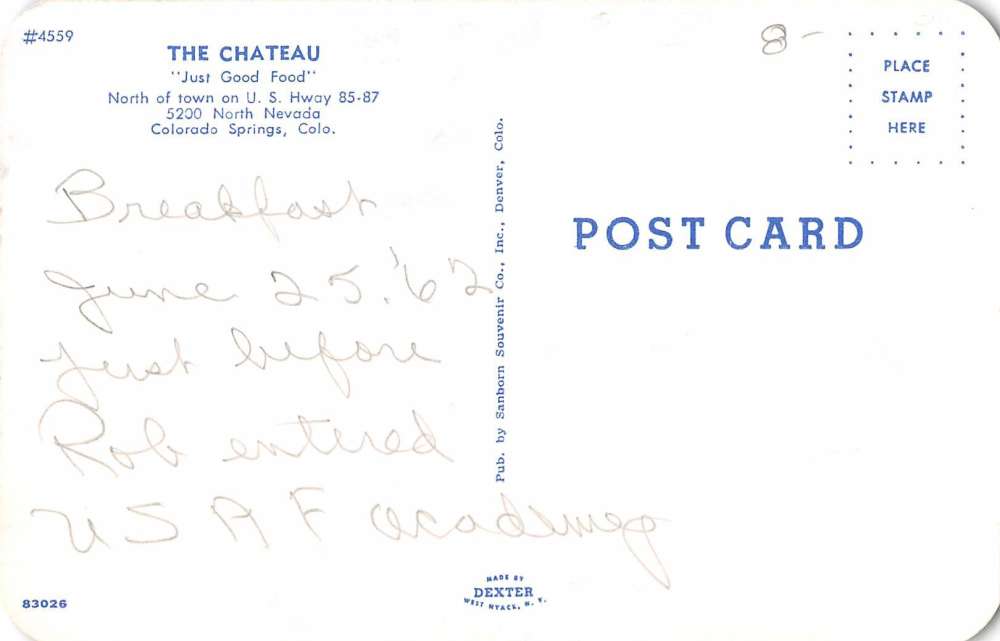 #4559
THE CHATEAU
"Just Good Food"
North of town on U. S. Hway 85-87
5200 North Nevada
Colorado Springs, Colo.
8-
PLACE
STAMP
HERE
Breakfast
June 25, '62
just before
Rob entered
U S A F Academy
Pub. by Sanborn Souvenir Co., Inc., Denver, Colo.
POST CARD
83026
MADE BY
DEXTER
WEST NYACK, N. Y.